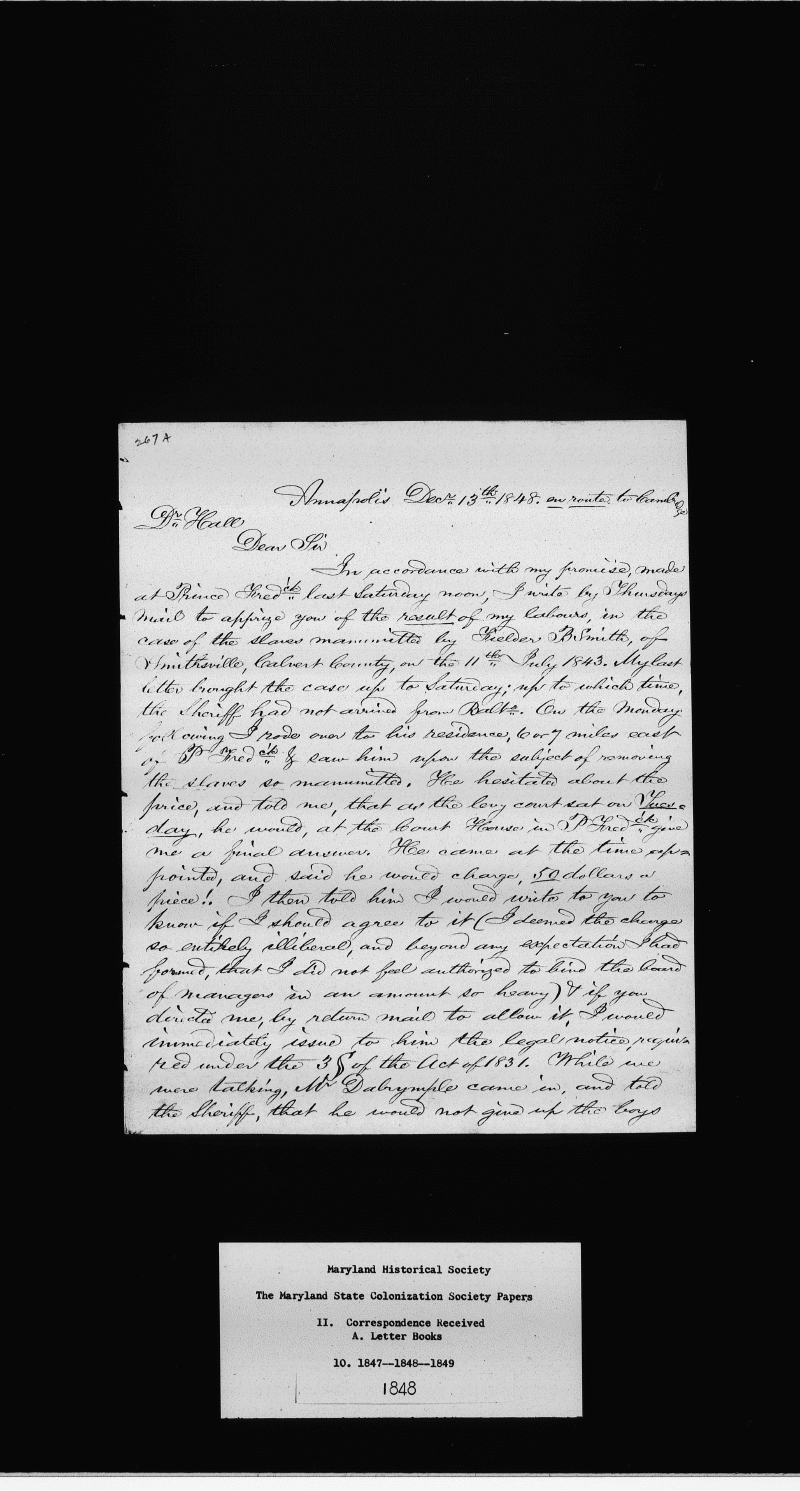 267 A
Annapolis Decr 13th 1848. en route to Cambridge
Dr Hall
Dear Sir
In accordance with my promise, made
at Prince Fredck last Saturday noon, I write by Thursdays
mail to apprize you of the result of my labours, in the
case of the slaves manumitted by Fielder B Smith, of
Smithsville, Calvert County, on the 11th July 1843. My last
letter brought the case up to Saturday; up to which time,
the Sheriff had not arrived from Balto. On the Monday
following I rode over to his residence, 6 or 7 miles east
of P Fredck & saw him upon the subject of removing
the slaves so manumitted. He hesitated about the
price, and told me, that as the levy court sat on Tues=
day, he would, at the Court House in P Fredck give
me a final answer. He came at the time ap=
pointed, and said he would charge, 50 dollars a
piece!. I then told him I would write to you to
know if I should agree to it (I deemed the charge
so entirely illiberal, and beyond any expectation I had
formed, that I did not feel authorized to bind the board
of managers in an amount so heavy) & if you
directed me, by return mail to allow it, I would
immediately issue to him the legal notice, requi=
red under the 3 § of the Act of 1831. While we
were talking, Mr Dalrymple came in, and told
the Sheriff, that he would not give up the boys
Maryland Historical Society
The Maryland State Colonization Society Papers
II. Correspondence Received
A. Letter Books
10. 1847--1848--1849
1848